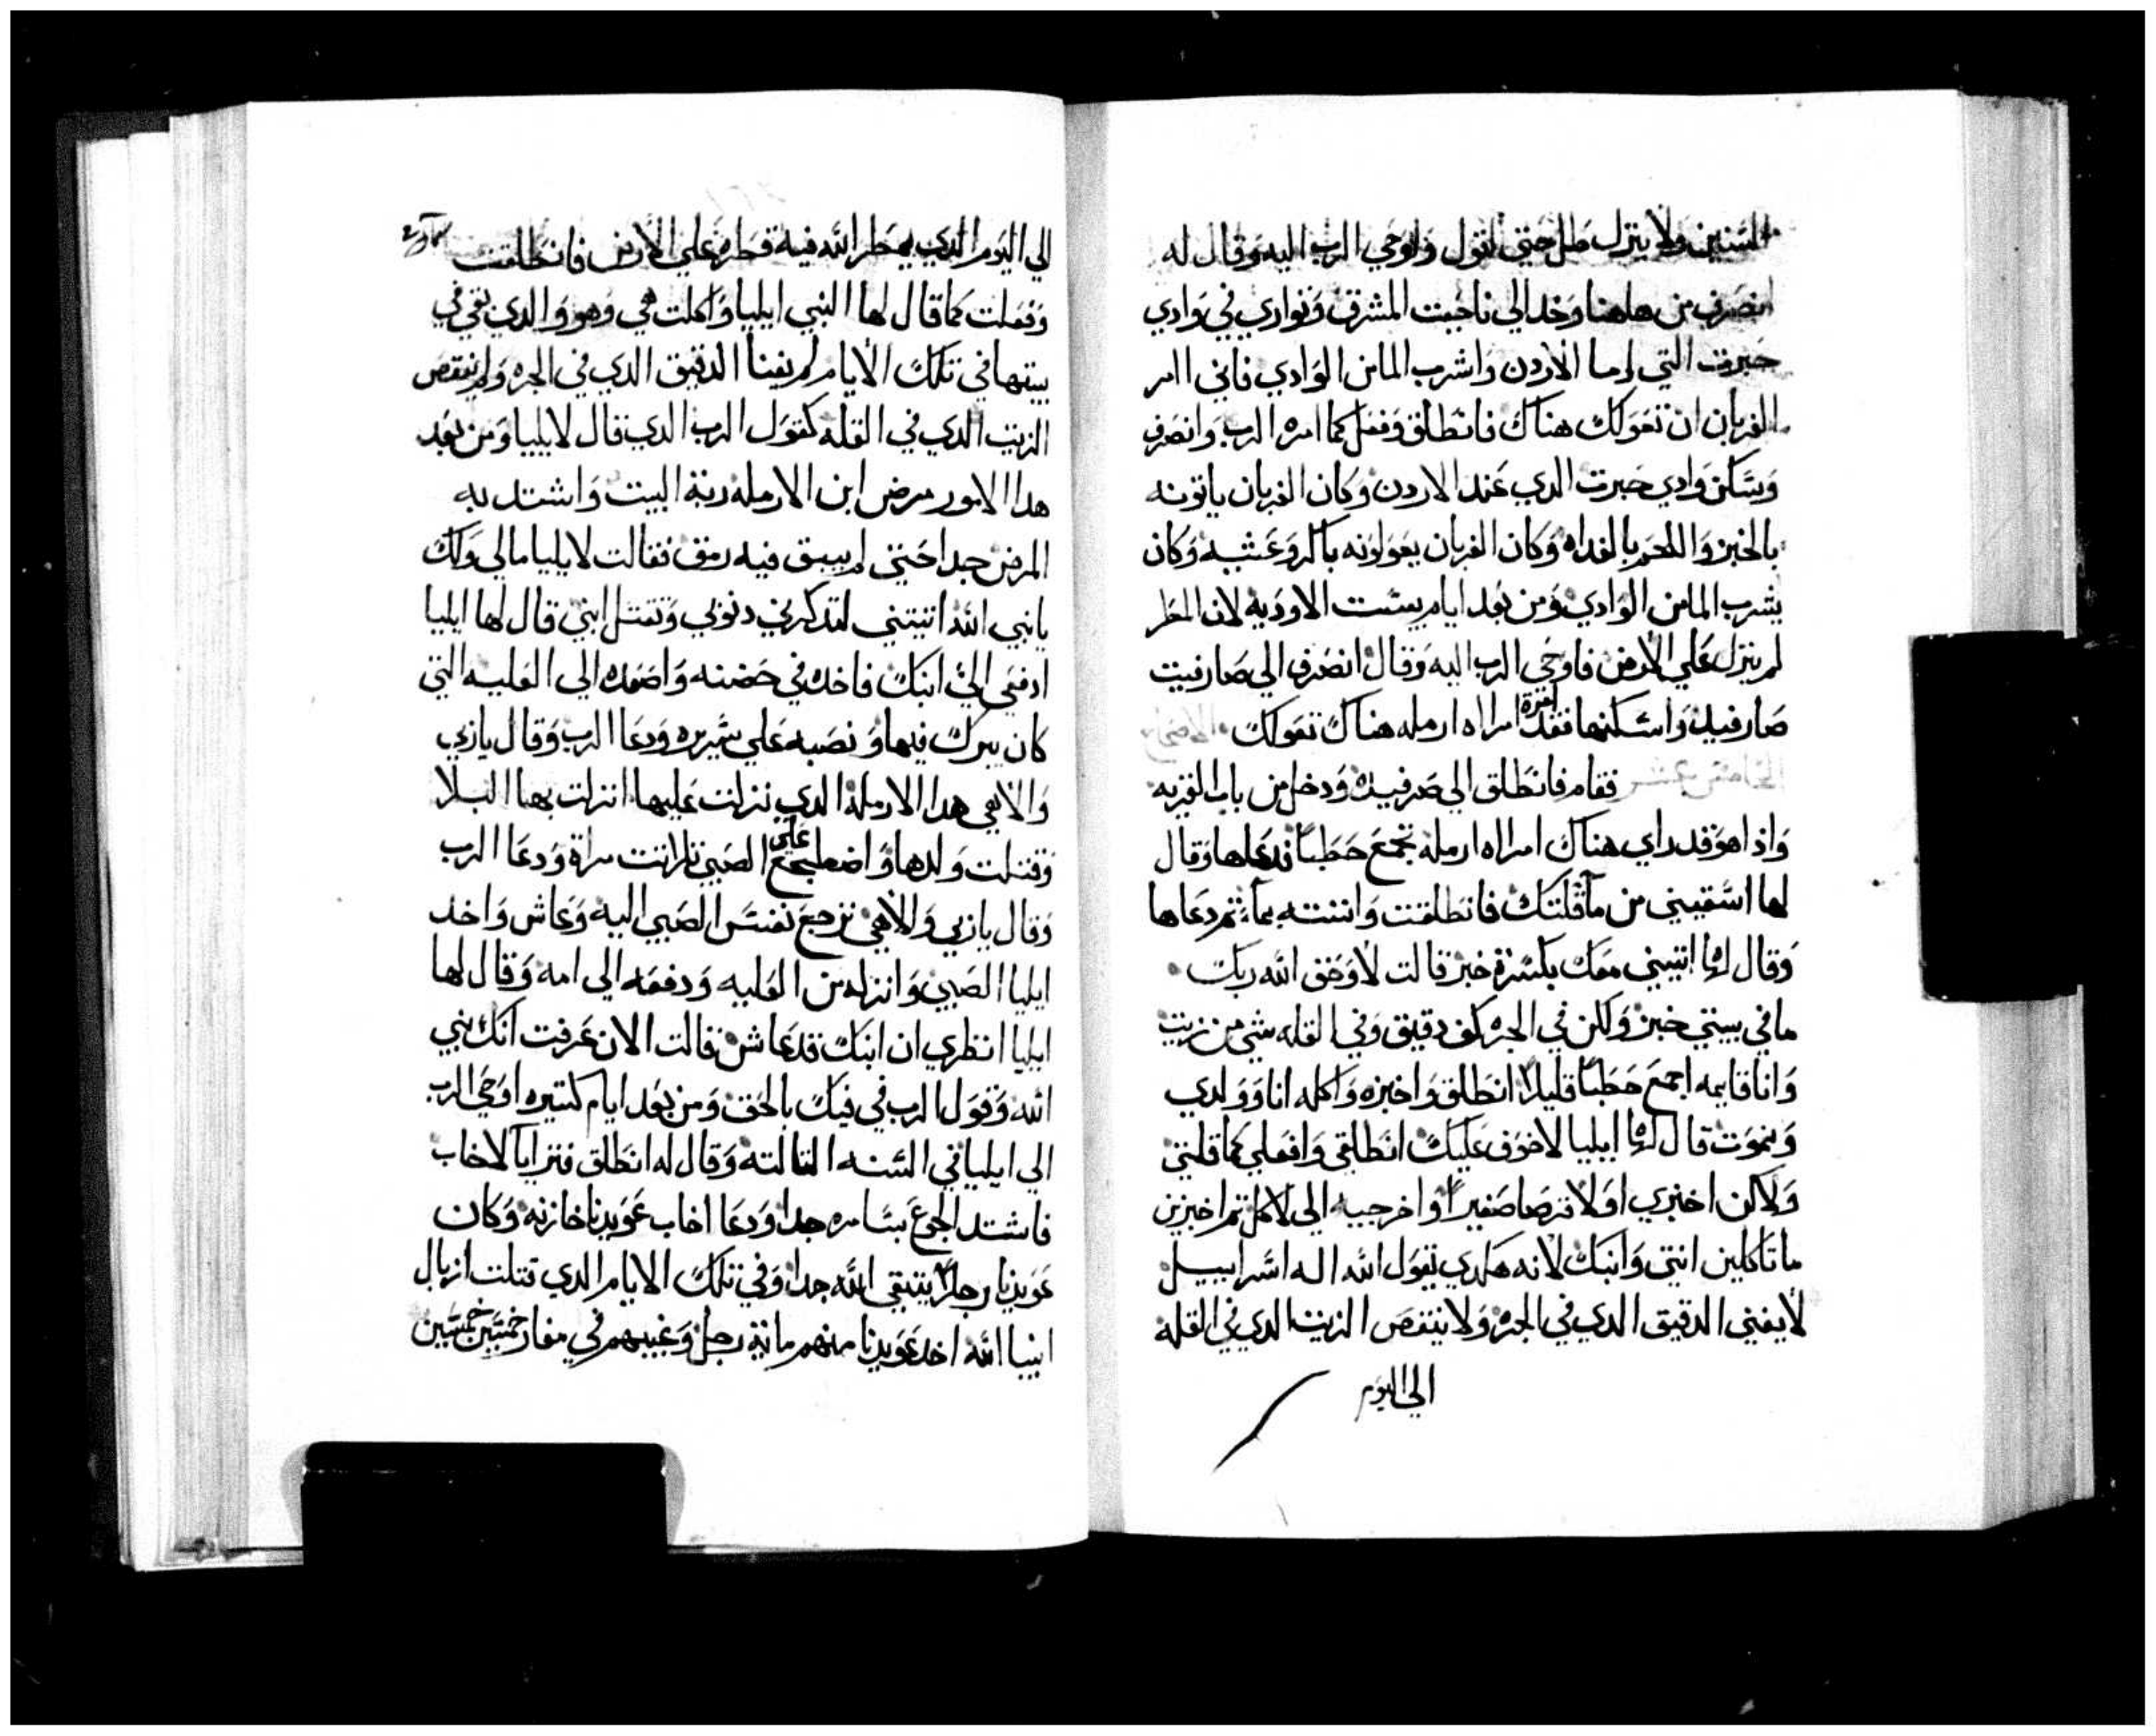 السنين ولا ينزل طل حتي اقول واوحي الرب اليه وقال له
انصرف من هاهنا وخد الي ناحيت المشرق وتواري في وادي
حيرت التي اما الاردن واشرب الما من الوادي فاني اامر
الغربان ان تعولك هناك فانطلق وفعل كما امره الرب وانصرف
وسكن وادي حيرت الدي عند الاردن وكان الغربان ياتونه
بالخبز واللحم بالغداه وكان الغربان يعولونه باكر وعشيه وكان
يشرب الما من الوادي ومن بعد ايام يبست الاوديه لان المطر
لم ينزل علي الارض فاوحي الرب اليه وقال انصرف الي صارفيت
صارفيد واسكنها فقد امرة امراه ارمله هناك تعولك
فقام فانطلق الي صرفيد ودخل من باب القريه
واذا هو قد راي هناك امراه ارمله تجمع حطبًا فدعاها وقال
لها اسقيني من ما قلتك فانطلقت واتته بماء ثم دعاها
وقال لها اتيني معك بكسرة خبز قالت لا وحق الله ربك
ما في بيتي خبز ولكن في الجره كف دقيق وفي القله شي من زيت
وانا قايمه اجمع حطبًا قليلا انطلق واخبزه واكله انا وولدي
ونموت قال لها ايليا لا خوف عليك انطلقي وافعلي كما قلتي
ولاكن اخبزي اولا قرصا صغيرًا واخرجيه الي لاكل ثم اخبزين
ما تاكلين انتي وابنك لانه هكدي يقول الله اله اسراييل
لا يفني الدقيق الدي في الجره ولا ينتقص الزيت الدي في القله
الي اليوم
الي اليوم الدي يمطر الله فيه قطره علي الارض فانطلقت
وفعلت كما قال لها النبي ايليا واكلت هي وهو والدي بقي في
بيتها في تلك الايام لم يفنا الدقيق الدي في الجره ولم ينتقص
الزيت الدي في القله كقول الرب الدي قال لايليا ومن بعد
هدا الامور مرض ابن الارمله ربة البيت واشتد به
المرض جدا حتي لم يبق فيه رمق فقالت لايليا مالي ولك
يا نبي الله اتيتني لتدكرني دنوبي وتقتل ابني قال لها ايليا
ادفعي الي ابنك فاخده في حضنه واصعده الي العليه التي
كان يبرك فيها ونصبه علي سريره ودعا الرب وقال يا ربي
والاهي هدا الارملة الدي نزلت عليها انزلت بها البلا
وقتلت ولدها واضطجع علي الصبي تلاتت مراة ودعا الرب
وقال يا ربي والاهي ترجع نفس الصبي اليه وعاش واخد
ايليا الصبي وانزله من العليه ودفعه الي امه وقال لها
ايليا انظري ان ابنك قد عاش فقالت الان عرفت انك نبي
الله وقول الرب في فيك بالحق ومن بعد ايام كتيره اوحي الرب
الي ايليا في السنه التالته وقال له انطلق فترايا لاخاب
فاشتد الجوع بسامره جدا ودعا اخاب عوبديا خازنه وكان
عوبديا رجلا يتقي الله جدا وفي تلك الايام الدي قتلت ازبال
انبيا الله اخد عوبديا منهم ماية رجل وغيبهم في مغار خمسين خمسين